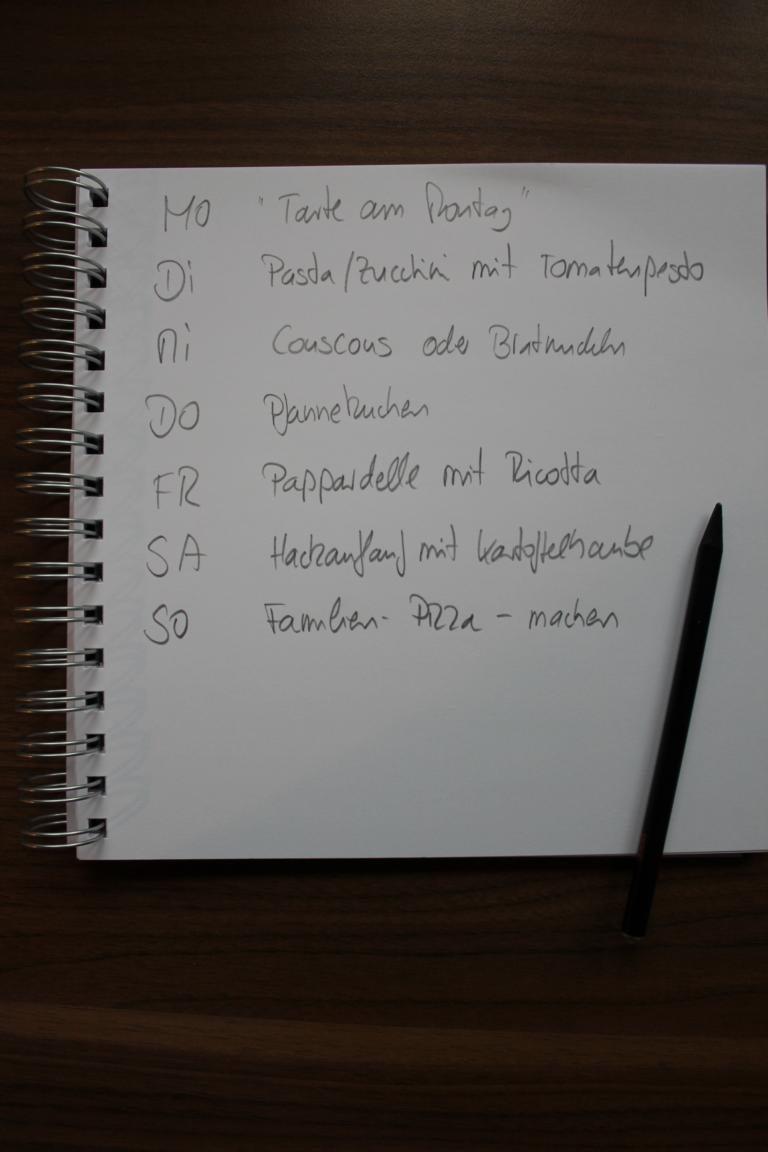 MO "Tarte am Montag"
Di Pasta/Zucchini mit Tomatenpesto
Mi Couscous oder Bratnudeln
DO Pfannekuchen
FR Pappardelle mit Ricotta
SA Hackauflauf mit Kartoffelhaube
SO Familien- Pizza - machen